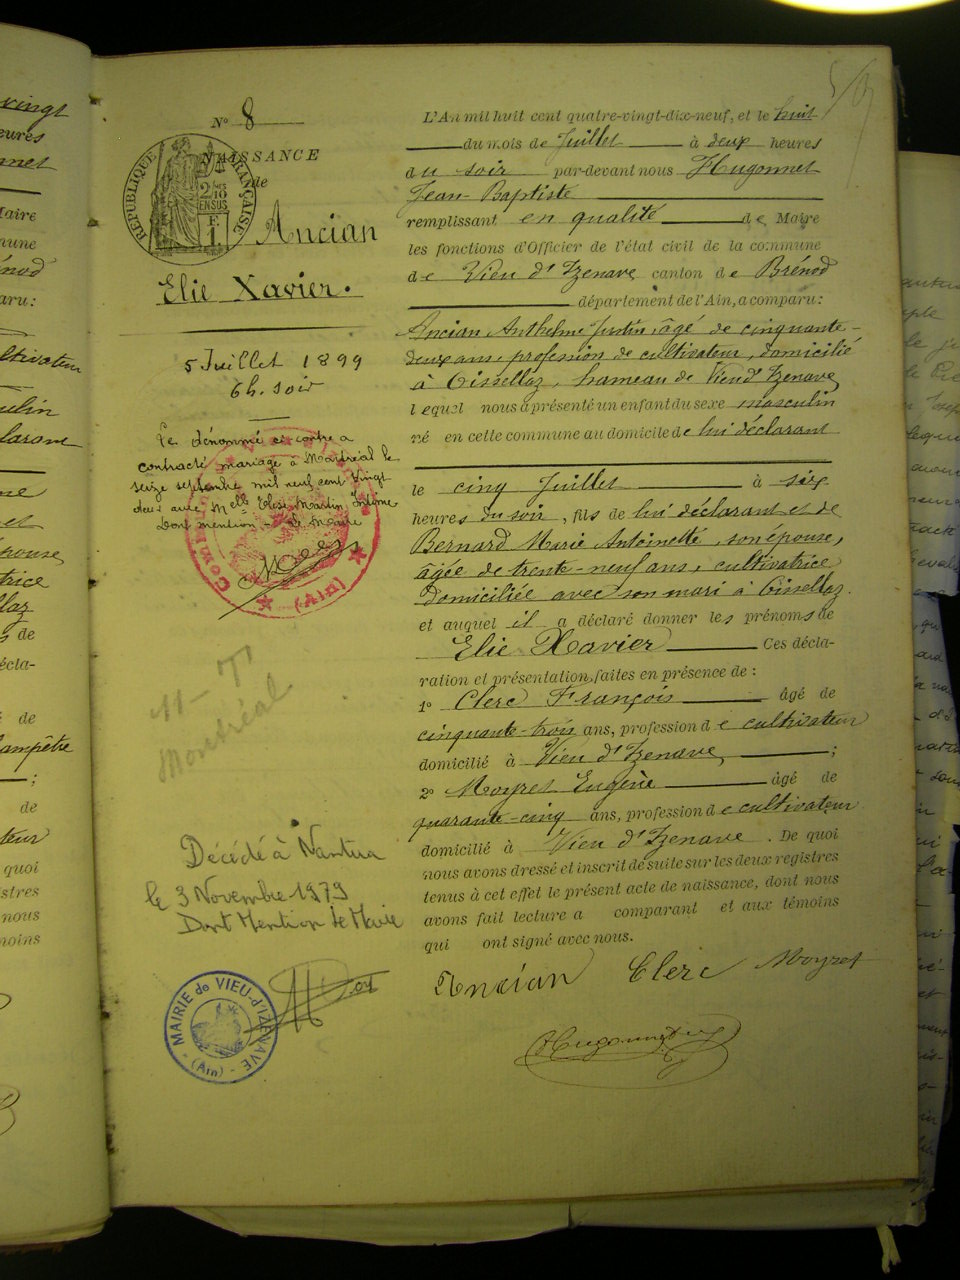 Nº 8
NAISSANCE
de
Ancian
Elie Xavier.
RÉPUBLIQUE FRANÇAISE
2/10
EN SUS
5 Juillet 1899
6h. soir
Le dénommé ci contre a
contracté mariage à Montréal le
seize septembre mil neuf cent vingt
deux avec Melle Elise Martin
Dont mention - Le Maire
(Ain)
11-
Montréal
Décédé à Nantua
le 3 Novembre 1979
Dont Mention Le Maire
MAIRIE de VIEU-d'IZENAVE
(Ain)
L'An mil huit cent quatre-vingt-dix-neuf, et le huit
du mois de Juillet à deux heures
du soir par-devant nous Hugonnet
Jean-Baptiste
remplissant en qualité de Maire
les fonctions d'Officier de l'état civil de la commune
de Vieu d'Izenave canton de Brénod
département de l'Ain, a comparu:
Ancian Anthelme Justin, âgé de cinquante-
deux ans, profession de cultivateur, domicilié
à Oissellaz, hameau de Vieu d'Izenave
lequel nous a présenté un enfant du sexe masculin
né en cette commune au domicile de lui déclarant
le cinq Juillet à six
heures du soir, fils de lui déclarant et de
Bernard Marie Antoinette, son épouse,
âgée de trente-neuf ans, cultivatrice
domiciliée avec son mari à Oissellaz.
et auquel il a déclaré donner les prénoms de
Elie Xavier Ces décla-
ration et présentation, faites en présence de:
1º Clerc François âgé de
cinquante-trois ans, profession de cultivateur
domicilié à Vieu d'Izenave;
2º Moyret Eugène âgé de
quarante-cinq ans, profession de cultivateur
domicilié à Vieu d'Izenave. De quoi
nous avons dressé et inscrit de suite sur les deux registres
tenus à cet effet le présent acte de naissance, dont nous
avons fait lecture a comparant et aux témoins
qui ont signé avec nous.
Ancian Clerc Moyret
Hugonnet